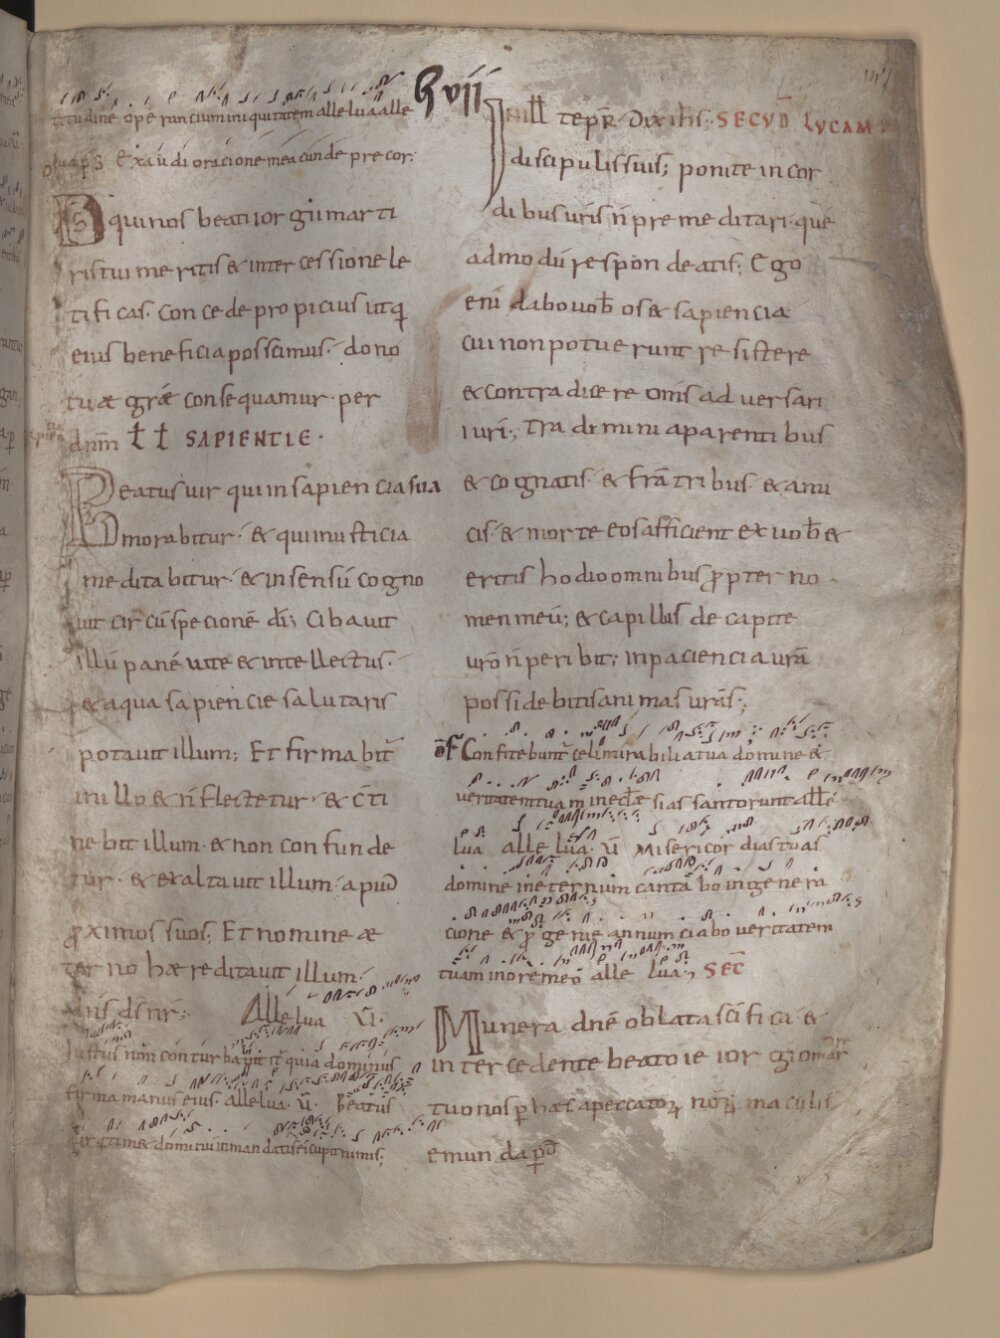 titudine operancium iniquitatem alleluia alle
luia ps Exaudi oracionem meā cun de precor.
Ds qui nos beati iorgii marti
ris tui meritis & intercessione le
tificas. Concede propicius ut q
eius beneficia possimus. dono
tuæ gr̄æ consequamur. per
dn̄m ŁŁ SAPIENTIE.
Beatus uir qui in sapiencia sua
morabitur. & qui in iusticia
meditabitur. & in sensū cogno
uit circūspecionē dī; Cibauit
illū panē uite & intellectus.
& aqua sapiencie salutaris
potauit illum; Et firmabit̄
in illo & n̄ flectetur. & c̄ti
nebit illum. & non confunde
tur. & exaltauit illum. apud
ꝓximos suos; Et nomine æ
terno hæreditauit illum.
dn̄s ds̄ nr̄; Alleluia V̄.
Justus non conturbabit̄ quia dominus
firma manus eius. alleluia. v̄. Beatus
uir qui timet dominū in mandatis ei cupit nimis;
xvii
In ill tēpr̄ Dixit ih̄s. SECVD̄ LVCAM
discipulis suis; ponite in cor
dibus ur̄is n̄ premeditari. quē
admodū respondeatis; Ego
eni dabo uob̄ os & sapiencia
cui non potuerunt resistere
& contradicere om̄s aduersari
i uri; Tradimini a parentibus
& cognatis. & fratribus & ami
cis. & morte eos afficient ex uob̄ &
eritis hodio omnibus ꝓpter no
men meū; & capillus de capite
ur̄o n̄ peribit; in paciencia ur̄a
possidebitis animas ur̄as;
OF Confitebunt̄ celi mirabilia tua domine &
ueritatem tuam in eclesias santorum all̄e
lua alleluia. V̄ Misericordias tuas
domine in eternum cantabo in genera
cione & ꝓgenie annunciabo ueritatem
tuam in ore meo alle lua; SEC̄
Munera dn̄e oblata sc̄ifica. &
intercedente beato ieiorgio mar̄
tuo nos ꝑ hæc a peccatoꝝ nr̄oꝝ maculis
emunda ꝑ